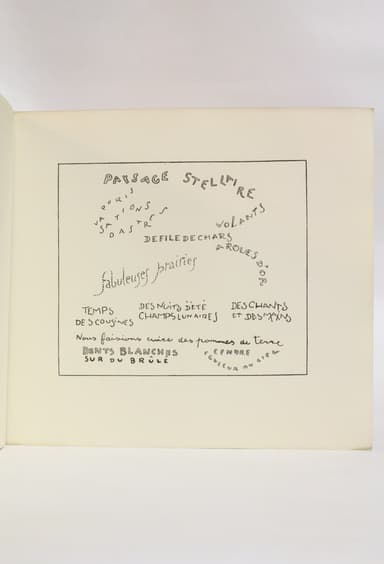 PAYSAGE STELLAIRE
D'ASTRES
VOLANTS
DEFILE DE CHARS
A ROUES D'OR
fabuleuses prairies
TEMPS
DES COUSINES
DES NUITS D'ÉTÉ
CHAMPS LUNAIRES
DES CHANTS
ET DES
Nous faisions cuire des pommes de terre
DENTS BLANCHES
SUR DU BRÛLÉ
CENDRE